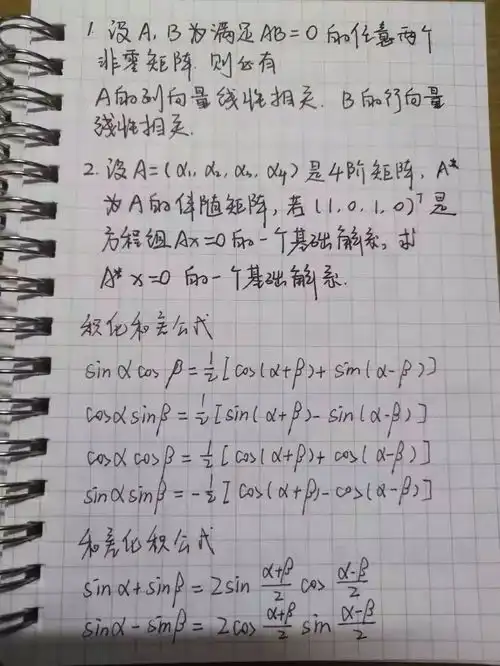 1. 设 A, B 为满足 AB=0 的任意两个
非零矩阵 则必有
A的列向量线性相关. B的行向量
线性相关.
2. 设 A=(α₁, α₂, α₃, α₄) 是4阶矩阵, A*
为A的伴随矩阵, 若 (1, 0, 1, 0)ᵀ 是
方程组Ax=0的一个基础解系, 求
A* x=0 的一个基础解系.
积化和差公式
sinαcosβ=½[cos(α+β)+sin(α-β)]
cosαsinβ=½[sin(α+β)-sin(α-β)]
cosαcosβ=½[cos(α+β)+cos(α-β)]
sinαsinβ=-½[cos(α+β)-cos(α-β)]
和差化积公式
sinα+sinβ=2sin (α+β)/2 cos (α-β)/2
sinα-sinβ=2cos (α+β)/2 sin (α-β)/2